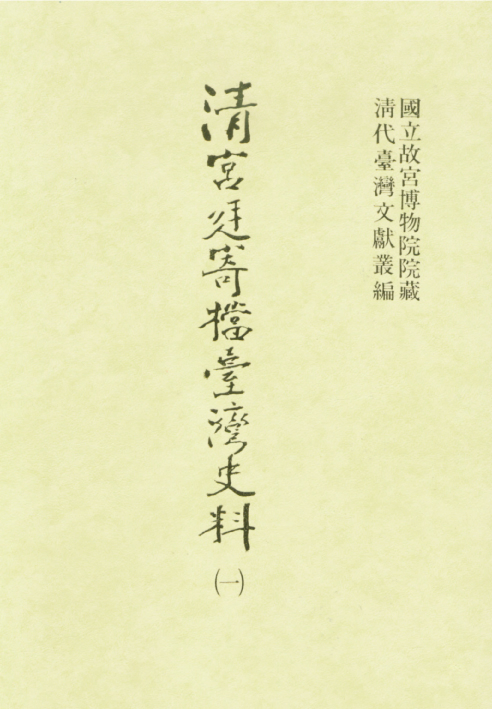 國立故宮博物院院藏
清代臺灣文獻叢編
清宮廷寄檔臺灣史料
(一)